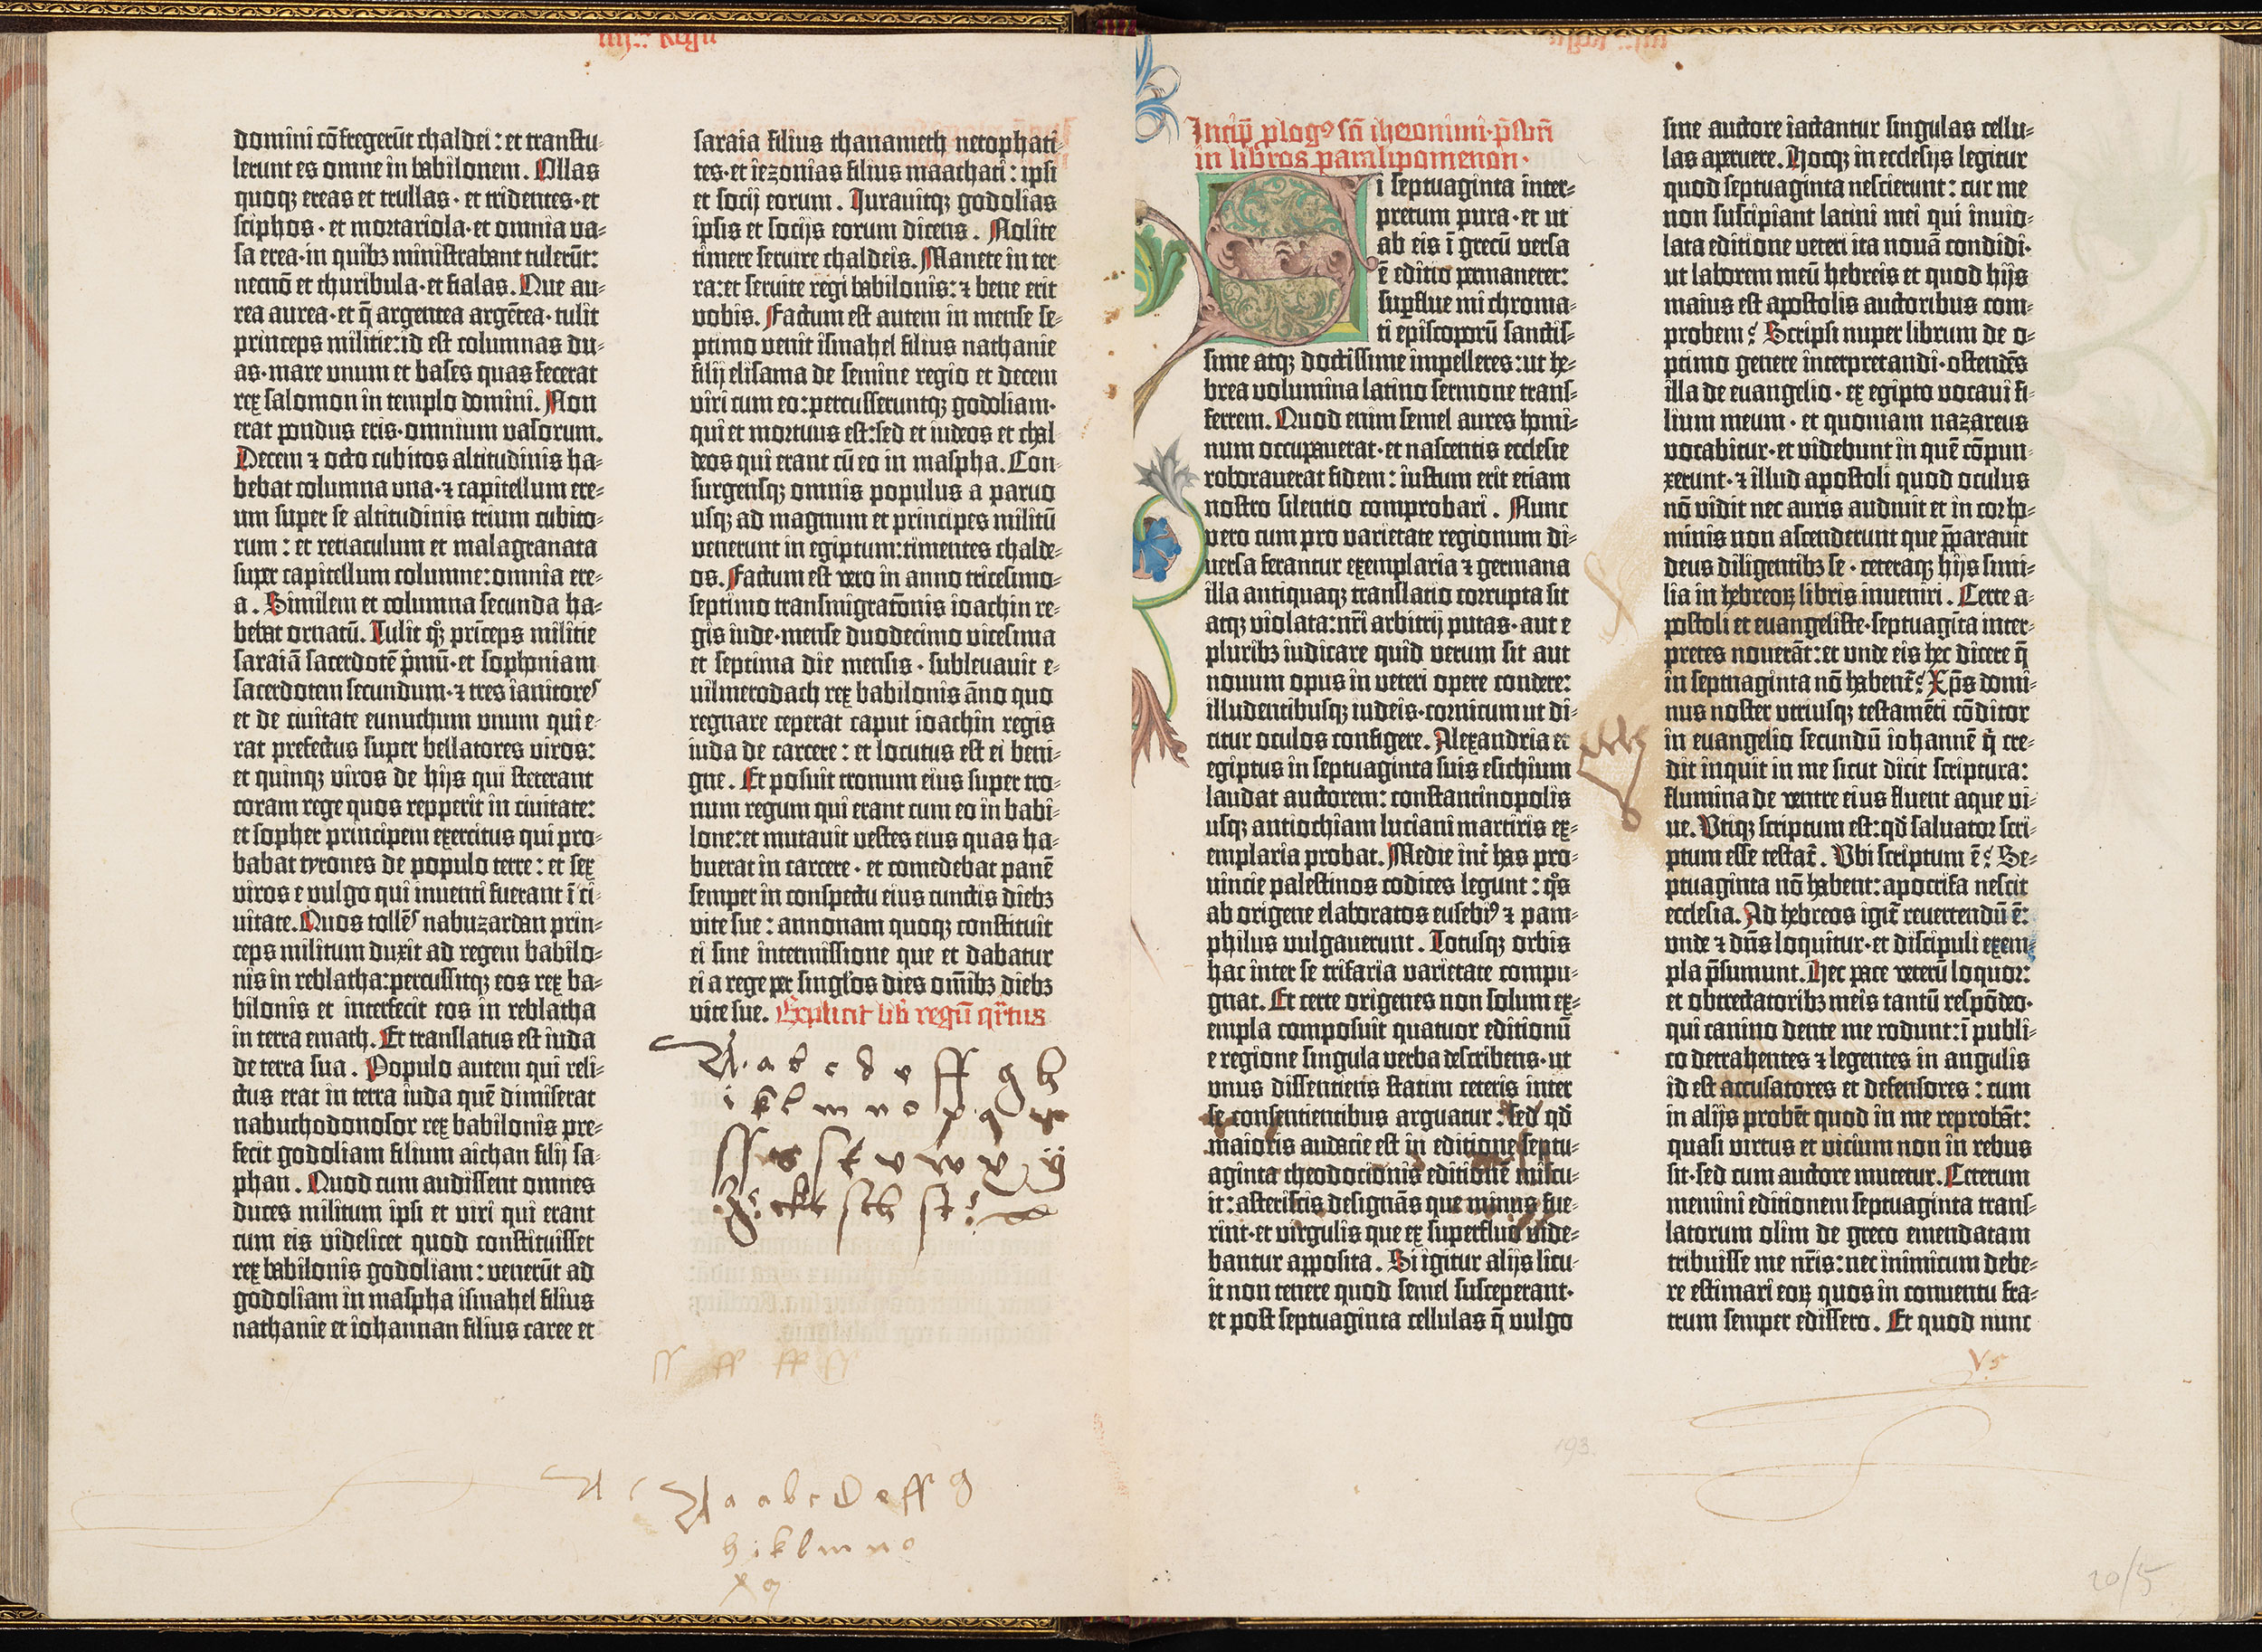 iiij :: Regū
domini cōfregerūt chaldei : et transtu-
lerunt es omne in babilonem . Ollas
quoqʒ ereas et trullas · et tridentes · et
sciphos · et mortariola · et omnia va-
sa erea · in quibʒ ministrabant tulerūt :
necnō et thuribula · et fialas . Que au-
rea aurea · et q̄ argentea argētea · tulit
princeps militie : id est columnas du-
as · mare unum et bases quas fecerat
rex salomon in templo domini . Non
erat pondus eris · omnium vasorum .
Decem ⁊ octo cubitos altitudinis ha-
bebat columna una · ⁊ capitellum ere-
um super se altitudinis trium cubito-
rum : et retiaculum et malagranata
super capitellum columne : omnia ere-
a . Similem et columna secunda ha-
bebat ornatū . Tulit qꝫ princeps militie
saraiā sacerdotē p̄mū · et sophoniam
sacerdotem secundum · ⁊ tres ianitores
et de civitate eunuchum unum qui e-
rat prefectus super bellatores viros :
et quinqʒ viros de hijs qui steterant
coram rege quos repperit in civitate :
et sopher principem exercitus qui pro-
babat tyrones de populo terre : et sex
viros e vulgo qui inventi fuerant ī ci-
vitate . Quos tollēs nabuzardan prin-
ceps militum duxit ad regem babilo-
nis in reblatha : percussitqʒ eos rex ba-
bilonis et interfecit eos in reblatha
in terra emath . Et translatus est iuda
de terra sua . Populo autem qui reli-
ctus erat in terra iuda quē dimiserat
nabuchodonosor rex babilonis pre-
fecit godoliam filium aichan filij sa-
phan . Quod cum audissent omnes
duces militum ipsi et viri qui erant
cum eis videlicet quod constituisset
rex babilonis godoliam : venerūt ad
godoliam in maspha ismahel filius
nathanie et iohannan filius caree et
saraia filius thanameth netophati-
tes · et iezonias filius maachati : ipsi
et socij eorum . Iuravitqʒ godolias
ipsis et socijs eorum dicens . Nolite
timere servire chaldeis . Manete in ter
ra : et servite regi babilonis : ⁊ bene erit
vobis . Factum est autem in mense se-
ptimo venit ismahel filius nathanie
filij elisama de semine regio et decem
viri cum eo : percusseruntqʒ godoliam ·
qui et mortuus est : sed et iudeos et chal-
deos qui erant cū eo in maspha . Con-
surgensqʒ omnis populus a parvo
usqʒ ad magnum et principes militū
venerunt in egiptum : timentes chalde-
os . Factum est vero in anno tricesimo-
septimo transmigrationis ioachin re-
gis iude · mense duodecimo vicesima
et septima die mensis · sublevavit e-
vilmerodach rex babilonis āno quo
regnare ceperat caput ioachin regis
iuda de carcere : et locutus est ei beni-
gne . Et posuit tronum eius super tro-
num regum qui erant cum eo in babi-
lone : et mutavit vestes eius quas ha-
buerat in carcere · et comedebat panē
semper in conspectu eius cunctis diebʒ
vite sue : annonam quoqʒ constituit
ei sine intermissione que et dabatur
ei a rege per singlos dies omībʒ diebʒ
vite sue . Explicit lib̄ regū qrtus
A · a b c d e ff g h
i k l m n o p q r
ff s s t v w v y
z : et sch st :
A c A a a b c d e ff g
h i k l m n o
p q
Incip̄ plogꝰ sc̄i iheronimi · p̄sbri
in libros paralipomenon ·
Si septuaginta inter-
pretum pura · et ut
ab eis ī grecū versa
ē editio permaneret :
superflue mi chroma-
ti episcoporū sanctis-
sime atqʒ doctissime impelleres : ut he-
brea volumina latino sermone trans-
ferrem . Quod enim semel aures homi-
num occupaverat · et nascentis ecclesie
roboraverat fidem : iustum erit etiam
nostro silentio comprobari . Nunc
vero cum pro varietate regionum di-
versa ferantur exemplaria ⁊ germana
illa antiquaqʒ translatio corrupta sit
atqʒ violata : nr̄i arbitrij putas · aut e
pluribʒ iudicare quid verum sit aut
novum opus in veteri opere condere :
illudentibusqʒ iudeis · cornicum ut di-
citur oculos configere . Alexandria et
egiptus in septuaginta suis esichium
laudat auctorem : constantinopolis
usqʒ antiochiam luciani martiris ex-
emplaria probat . Medie int̄ has pro-
vincie palestinos codices legunt : qōs
ab origene elaboratos eusebiꝰ ⁊ pam-
philus vulgaverunt . Totusqʒ orbis
hac inter se trifaria varietate compu-
gnat . Et certe origenes non solum ex-
empla composuit quatuor editionū
e regione singula verba describens · ut
unus dissentiens statim ceteris inter
se consentientibus arguatur : sed qd̄
maioris audacie est in editione septu-
aginta theodotionis editionē miscu-
it : asteriscis designās que minus fue-
rint · et virgulis que ex superfluo vide-
bantur apposita . Si igitur alijs licu-
it non tenere quod semel susceperant ·
et post septuaginta cellulas q̄ vulgo
sine auctore iactantur singulas cellu-
las aperuere . Hocqʒ in ecclesijs legitur
quod septuaginta nescierunt : cur me
non suscipiant latini mei qui invio-
lata editione veteri ita novā condidi ·
ut laborem meū hebreis et quod hijs
maius est apostolis auctoribus com-
probem ? Scripsi nuper librum de o-
ptimo genere interpretandi · ostendēs
illa de euangelio · ex egipto vocavi fi-
lium meum · et quoniam nazareus
vocabitur · et videbunt in quē cōpun-
xerunt · ⁊ illud apostoli quod oculus
nō vidit nec auris audivit et in cor ho-
minis non ascenderunt que p̄paravit
deus diligentibʒ se · ceteraqʒ hijs simi-
lia in hebreoꝝ libris inveniri . Certe a-
postoli et euangeliste · septuagīta inter-
pretes noverāt : et unde eis hec dicere q̄
in septuaginta nō habent̄ ? Xp̄s domi-
nus noster utriusqʒ testamēti cōditor
in euangelio secundū iohannē q̄ cre-
dit inquit in me sicut dicit scriptura :
flumina de ventre eius fluent aque vi-
ve . Utiqʒ scriptum est : qd̄ salvator scri-
ptum esse testat̄ . Ubi scriptum ē ? Se-
ptuaginta nō habent : apocrifa nescit
ecclesia . Ad hebreos igit̄ revertendū ē :
unde ⁊ dn̄s loquitur · et discipuli exem-
pla p̄sumunt . Hec pace veterū loquor :
et obtrectatoribʒ meis tantū respōdeo ·
qui canino dente me rodunt : ī publi-
co detrahentes ⁊ legentes in angulis
id est accusatores et defensores : cum
in alijs probēt quod in me reprobāt :
quasi virtus et vicium non in rebus
sit · sed cum auctore mutetur . Ceterum
memini editionem septuaginta trans-
latorum olim de greco emendatam
tribuisse me nr̄is : nec inimicum debe-
re estimari eoꝝ quos in conventu fra-
trum semper edissero . Et quod nunc
193.
20/5